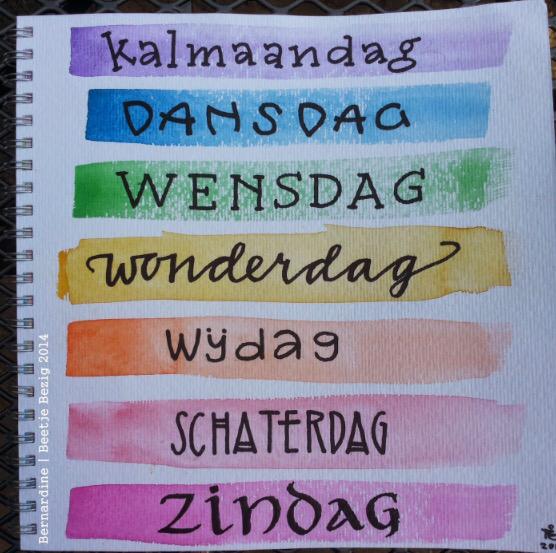 kalmaandag
DANSDAG
WENSDAG
wonderdag
Wÿdag
SCHATERDAG
zindag
Bernardine | Beetje Bezig 2014